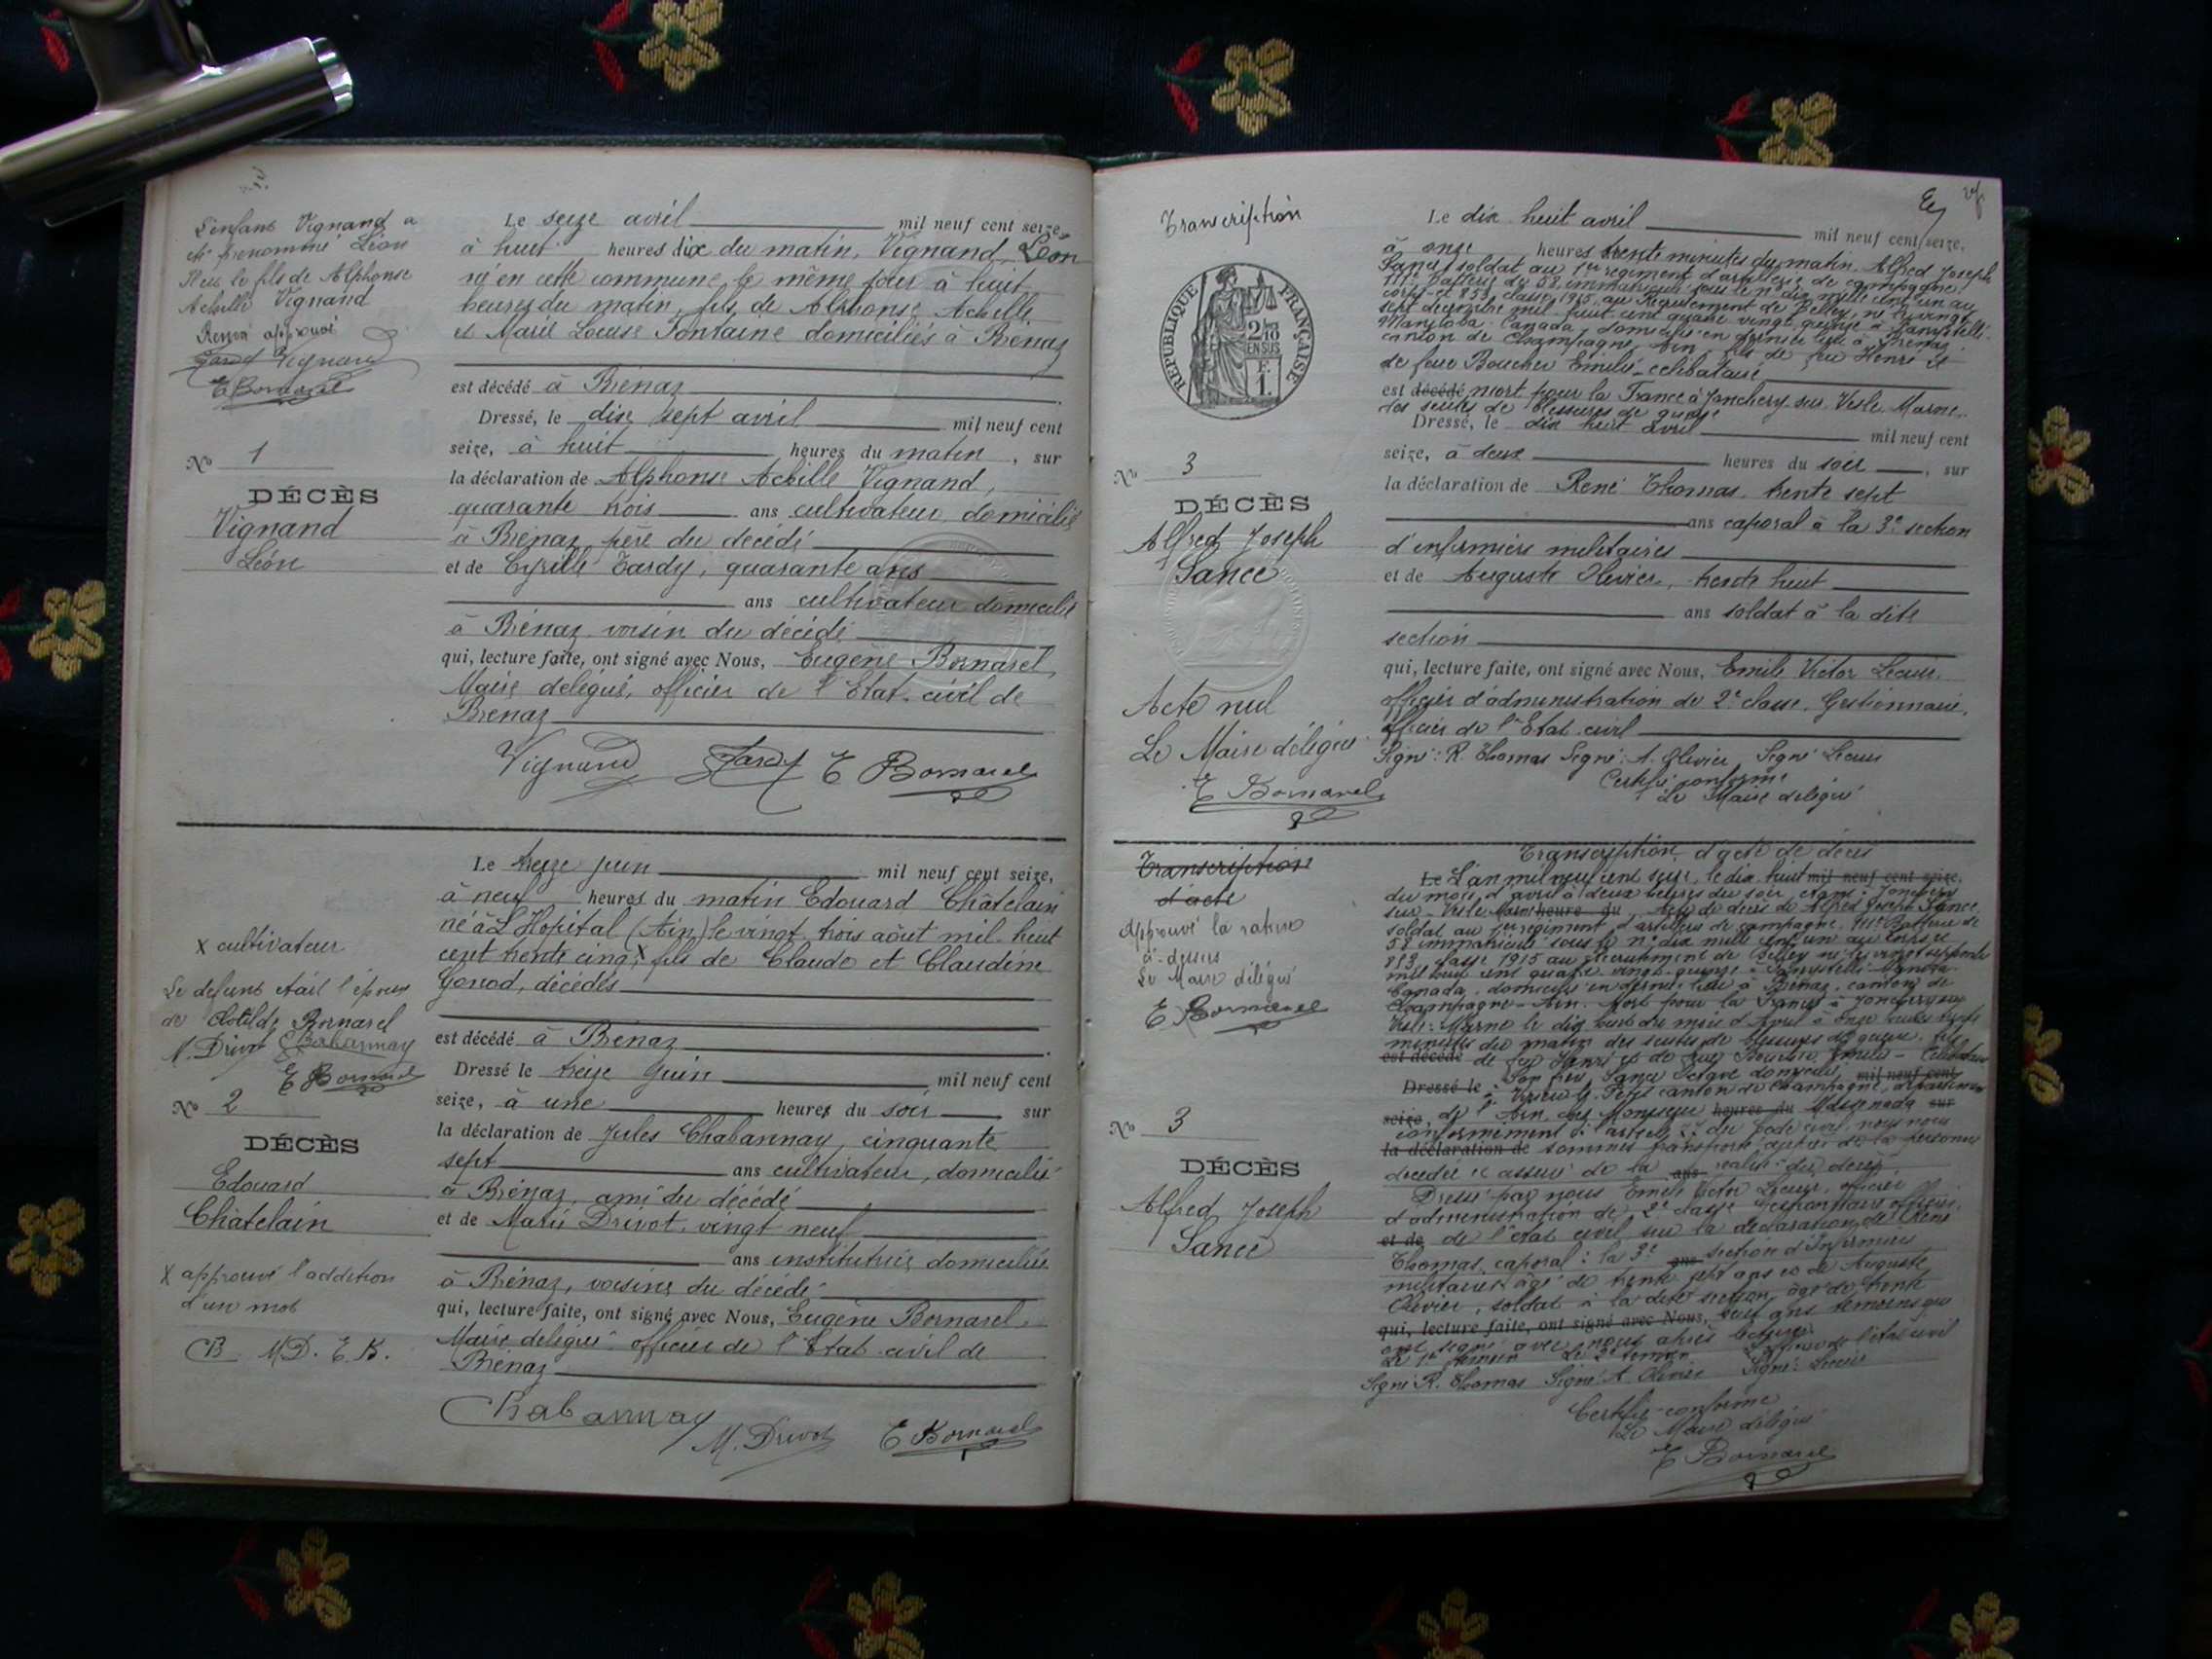 L'enfant Vignand a
été prénommé Léon
Il est le fils de Alphonse
Achille Vignand
approuvé
Tardy Vignand
E Bornarel
No 1
DÉCÈS
Vignand
Léon
Le seize avril mil neuf cent seize,
à huit heures dix du matin, Vignand, Léon
né en cette commune le même jour à huit
heures du matin, fils de Alphonse Achille
et Marie Louise Fontaine domiciliés à Brénaz
est décédé à Brénaz
Dressé, le dix sept avril mil neuf cent
seize, à huit heures du matin, sur
la déclaration de Alphonse Achille Vignand,
quarante trois ans cultivateur, domicilié
à Brénaz, père du décédé
et de Cyrille Tardy, quarante ans
ans cultivateur domicilié
à Brénaz voisin du décédé
qui, lecture faite, ont signé avec Nous, Eugène Bornarel
Maire délégué, officier de l'Etat-civil de
Brénaz
Vignand Tardy E Bornarel
X cultivateur
Le défunt était l'époux
de Clotilde Bornarel
M. Drivot Chabannay
E Bornarel
No 2
DÉCÈS
Edouard
Châtelain
X approuvé l'addition
d'un mot
CB MD. E.B.
Le treize juin mil neuf cent seize,
à neuf heures du matin Edouard Châtelain
né à L'Hôpital (Ain) le vingt trois août mil huit
cent trente cinq, X fils de Claude et Claudine
Gonod, décédés
est décédé à Brénaz
Dressé le treize juin mil neuf cent
seize, à une heures du soir sur
la déclaration de Jules Chabannay, cinquante
sept ans cultivateur, domicilié
à Brénaz, ami du décédé
et de Marie Drivot, vingt neuf
ans institutrice domiciliée
à Brénaz, voisine du décédé
qui, lecture faite, ont signé avec Nous, Eugène Bornarel,
Maire délégué officier de l'Etat-civil de
Brénaz
Chabannay
M. Drivot E Bornarel
Transcription
RÉPUBLIQUE FRANÇAISE
2/10 EN SUS
F. 1.
No 3
DÉCÈS
Alfred Joseph
Sance
Acte nul
Le Maire délégué
E Bornarel
Le dix huit avril mil neuf cent seize,
à onze heures trente minutes du matin, Alfred Joseph
Sance, soldat au 1er régiment d'artillerie de campagne,
111e Batterie de 58 immatriculé sous le n° dix mille cent un au
corps et 853 classe 1915 au Recrutement de Belley, né le vingt
sept décembre mil huit cent quatre vingt quinze à
Manitoba Canada, domicilié en dernier lieu à Brénaz
canton de Champagne, Ain, fils de feu Henri et
de feue Boucher Emilie, célibataire
est décédé mort pour la France à Jonchery-sur-Vesle Marne
des suites de blessures de guerre
Dressé, le dix huit avril mil neuf cent
seize, à deux heures du soir, sur
la déclaration de René Thomas, trente sept
ans caporal à la 3e section
d'infirmiers militaires
et de Auguste Olivier, trente huit
ans soldat à la dite
section
qui, lecture faite, ont signé avec Nous, Emile Victor Lecuir,
officier d'administration de 2e classe, Gestionnaire,
officier de l'Etat-civil
Signé: R. Thomas Signé: A. Olivier Signé Lecuir
Certifié conforme
Le Maire délégué
Transcription
d'acte
Approuvé la rature
ci-dessus
Le Maire délégué
E Bornarel
No 3
DÉCÈS
Alfred Joseph
Sance
Transcription d'acte de décès
Le L'an mil neuf cent seize, le dix huit mil neuf cent seize,
du mois d'avril à deux heures du soir, étant à Jonchery
sur-Vesle Marne heure du, Acte de décès de Alfred Joseph Sance,
soldat au 1er régiment d'artillerie de campagne, 111e Batterie de
58 immatriculé sous le n° dix mille cent un au corps et
813 classe 1915 au recrutement de Belley né le vingt sept
mil huit cent quatre vingt-quinze
Canada, domicilié en dernier lieu à Brénaz, canton de
Champagne-Ain. Mort pour la France à Jonchery-sur
Vesle-Marne le dix huit du mois d'Avril à onze heures trente
minutes du matin des suites de blessures de guerre, fils
est décédé de feu Henri et de feue Boucher Emilie - Célibataire
Dressé le mil neuf cent
Virieu le Petit canton de Champagne, département
seize, de l'Ain heures du sur
conformément à l'article 77 du Code civil, nous nous
la déclaration de sommes transporté auprès de la personne
décédée et assuré de la ans réalité du décès.
Dressé par nous Emile Victor Lecuir, officier
d'administration de 2e classe Gestionnaire officier
et de de l'état civil, sur la déclaration de René
Thomas, caporal à la 3e ans section d'Infirmiers
militaires âgé de trente sept ans et de Auguste
Olivier, soldat à la dite section, âgé de trente
qui, lecture faite, ont signé avec Nous, huit ans témoins qui
ont signé avec nous après lecture.
Le 1er témoin Le 2e témoin L'officier de l'état civil
Signé R. Thomas Signé: A Olivier Signé: Lecuir
Certifié conforme
Le Maire délégué
E Bornarel